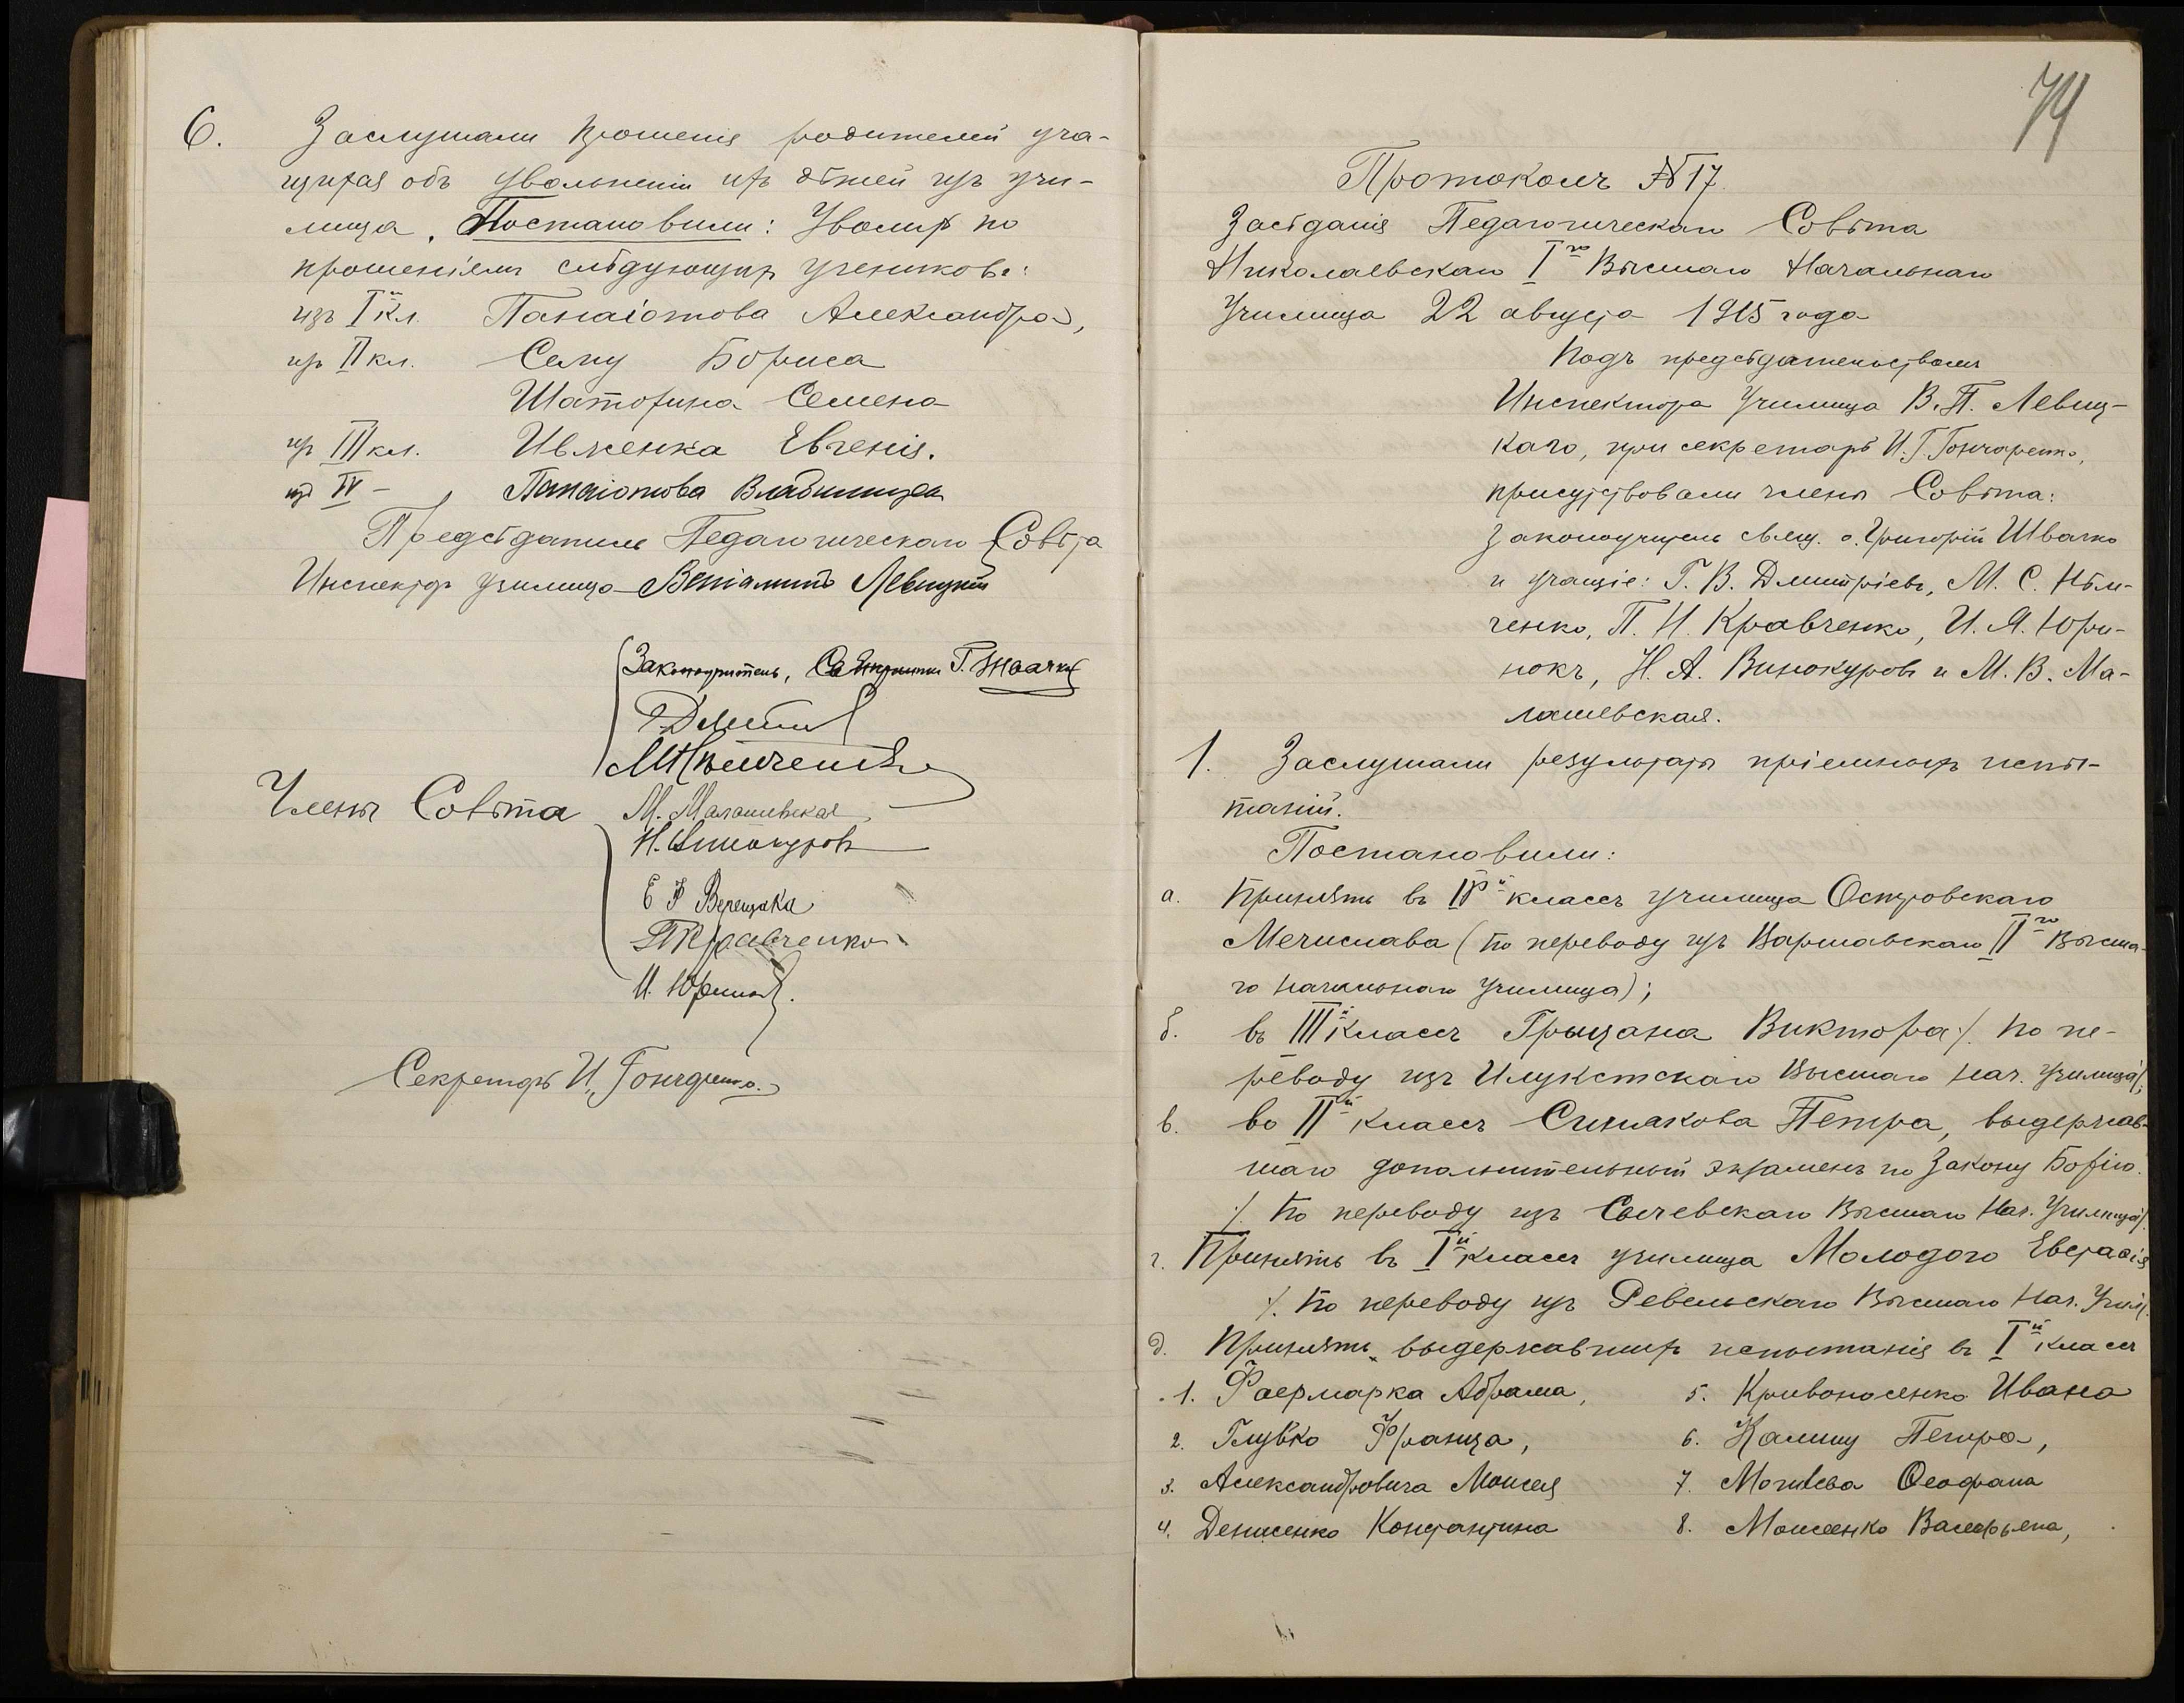 6. Заслушали прошенія родителей уча-
щихся объ увольненіи ихъ дѣтей изъ учи-
лища. Постановили: Уволить по
прошеніямъ слѣдующихъ учениковъ:
изъ I й кл. Панаіотова Александра,
изъ II кл. Саму Бориса
Шатохина Семена
изъ III кл. Ивженка Евгенія.
изъ IV – Панаіотова Владиміра
Предсѣдатель Педагогическаго Совѣта
Инспекторъ училища Веніаминъ Левицкій
Законоучитель, Священникъ Г. Швачко
Г. Дмит
М Нѣмченко
Члены Совѣта М. Малашевская
Н. Винокуровъ
Е Верещака
П Кравченко
И. Юринокъ
Секретарь И. Гончаренко.
74
Протоколъ № 17.
Засѣданія Педагогическаго Совѣта
Николаевскаго I го Высшаго Начальнаго
Училища 22 августа 1915 года
Подъ предсѣдательствомъ
Инспектора Училища В. П. Левиц-
каго, при секретарѣ И. Г. Гончаренко,
присутствовали члены Совѣта:
Законоучитель свящ. о. Григорій Швачко
и учащіе: Г. В. Дмитріевъ, М. С. Нѣм-
ченко, П. И. Кравченко, И. Я. Юри-
нокъ, Н. А. Винокуровъ и М. В. Ма-
лашевская.
1. Заслушали результаты пріемныхъ испы-
таній.
Постановили:
а. Принять въ IV й классъ училища Островскаго
Мечислава (по переводу изъ Варшавскаго II го Высша-
го Начальнаго Училища);
б. въ III й классъ Грыцана Виктора /. по пе-
реводу изъ Илукстскаго Высшаго Нач. Училища/;
в. во II й классъ Синякова Петра, выдержав-
шаго дополнительный экзаменъ по Закону Божію.
/. по переводу изъ Сычевскаго Высшаго Нач. Училища/.
г. Принять въ I й классъ училища Молодого Евстафія
/. по переводу изъ Ревельскаго Высшаго Нач. Учил/.
д. Принять выдержавшихъ испытанія въ I й классъ
1. Фаермарка Абрама, 5. Кривоносенко Ивана
2. Глубко Франца, 6. Калину Петра,
3. Александровича Моисея 7. Могилева Ѳеофана
4. Денисенко Константина 8. Моисеенко Валерьяна,